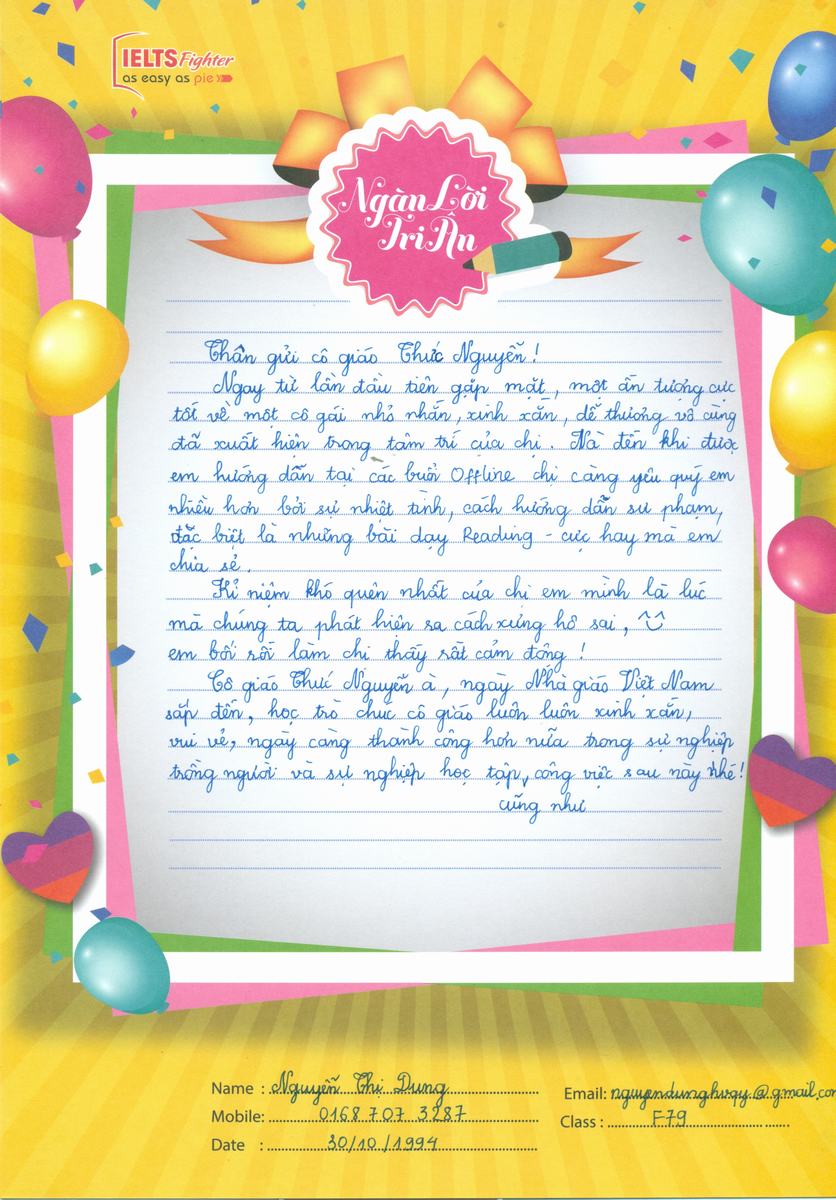 IELTS Fighter
as easy as pie
Ngàn Lời
Tri Ân
Thân gửi cô giáo Thức Nguyễn!
Ngay từ lần đầu tiên gặp mặt, một ấn tượng cực
tốt về một cô gái nhỏ nhắn, xinh xắn, dễ thương vô cùng
đã xuất hiện trong tâm trí của chị. Và đến khi được
em hướng dẫn tại các buổi Offline chị càng yêu quý em
nhiều hơn bởi sự nhiệt tình, cách hướng dẫn sư phạm,
đặc biệt là những bài dạy Reading - cực hay mà em
chia sẻ.
Kỉ niệm khó quên nhất của chị em mình là lúc
mà chúng ta phát hiện ra cách xưng hô sai, ^^
em bối rối làm chị thấy rất cảm động!
Cô giáo Thức Nguyễn à, ngày Nhà giáo Việt Nam
sắp đến, học trò chúc cô giáo luôn luôn xinh xắn,
vui vẻ, ngày càng thành công hơn nữa trong sự nghiệp
trồng người và sự nghiệp học tập, công việc sau này nhé!
cũng như
Name : Nguyễn Thị Dung
Email: nguyendunghvqy@gmail.com
Mobile: 0168 707 3287
Class : F79
Date : 30/10/1994